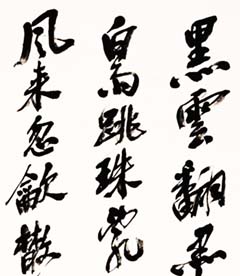 黑雲翻墨
白雨跳珠亂
風来忽散